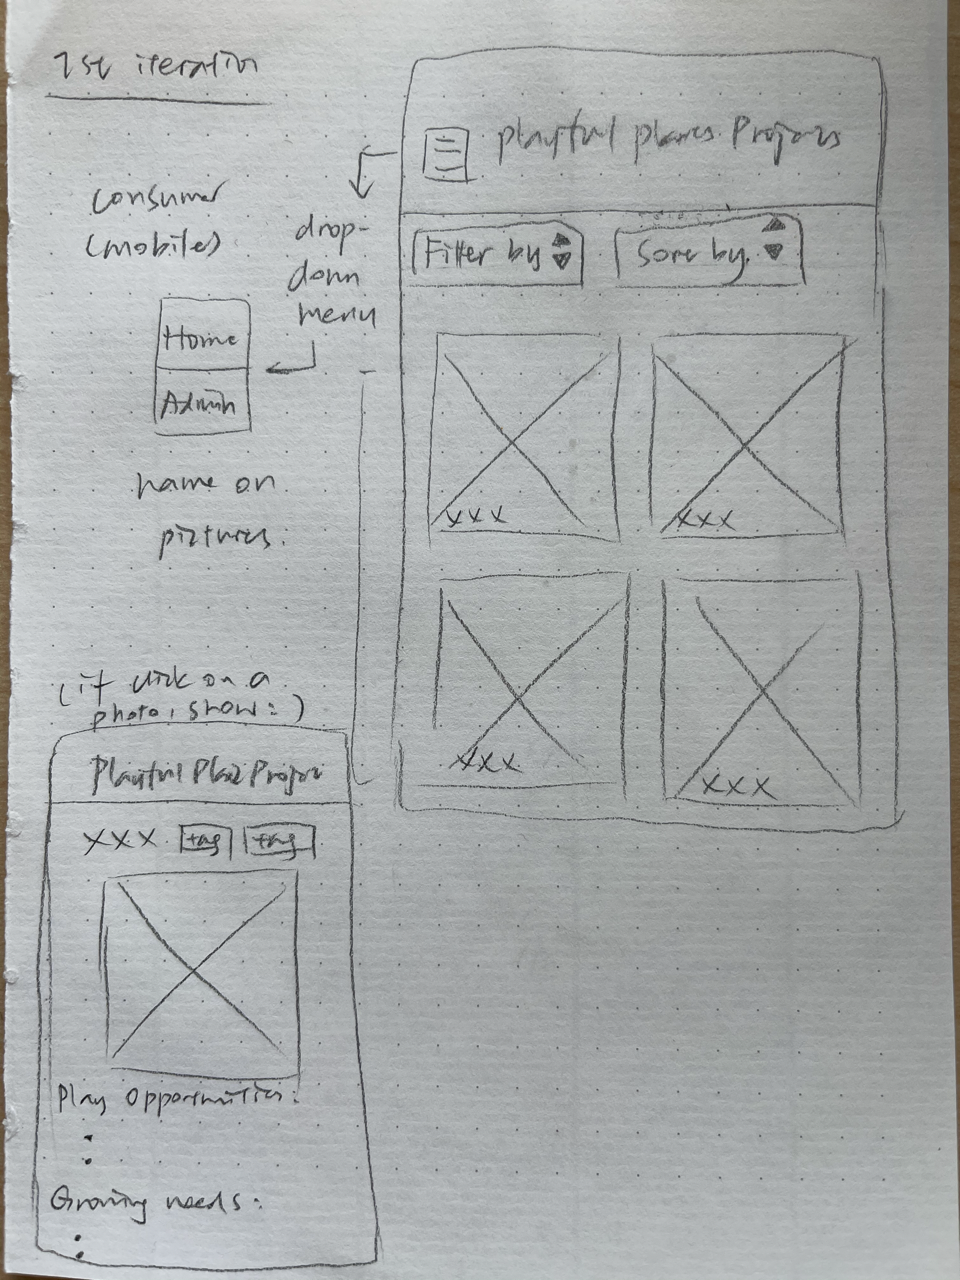 1st iteration
consumer
(mobile)
drop-
down
menu
Home
Admin
name on
pictures.
Playful plants Projects
Filter by
Sort by
xxx
xxx
xxx
xxx
(if click on a
photo, show:)
Playful Plant Project
xxx tag tag
Play Opportunities:
Growing needs: